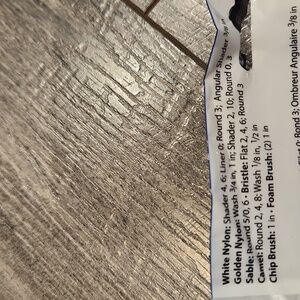 White Nylon: Shader 4, 6; Liner 0; Round 3; Angular Shader 3/8 in
Golden Nylon: Wash 3/4 in, 1 in; Shader 2, 10; Round 0, 3
Sable: Round 5/0, 6 • Bristle: Flat 2, 4, 6; Round 3
Camel: Round 2, 4, 8; Wash 1/8 in, 1/2 in
Chip Brush: 1 in • Foam Brush: (2) 1 in
0; Rond 3; Ombreur Angulaire 3/8 in